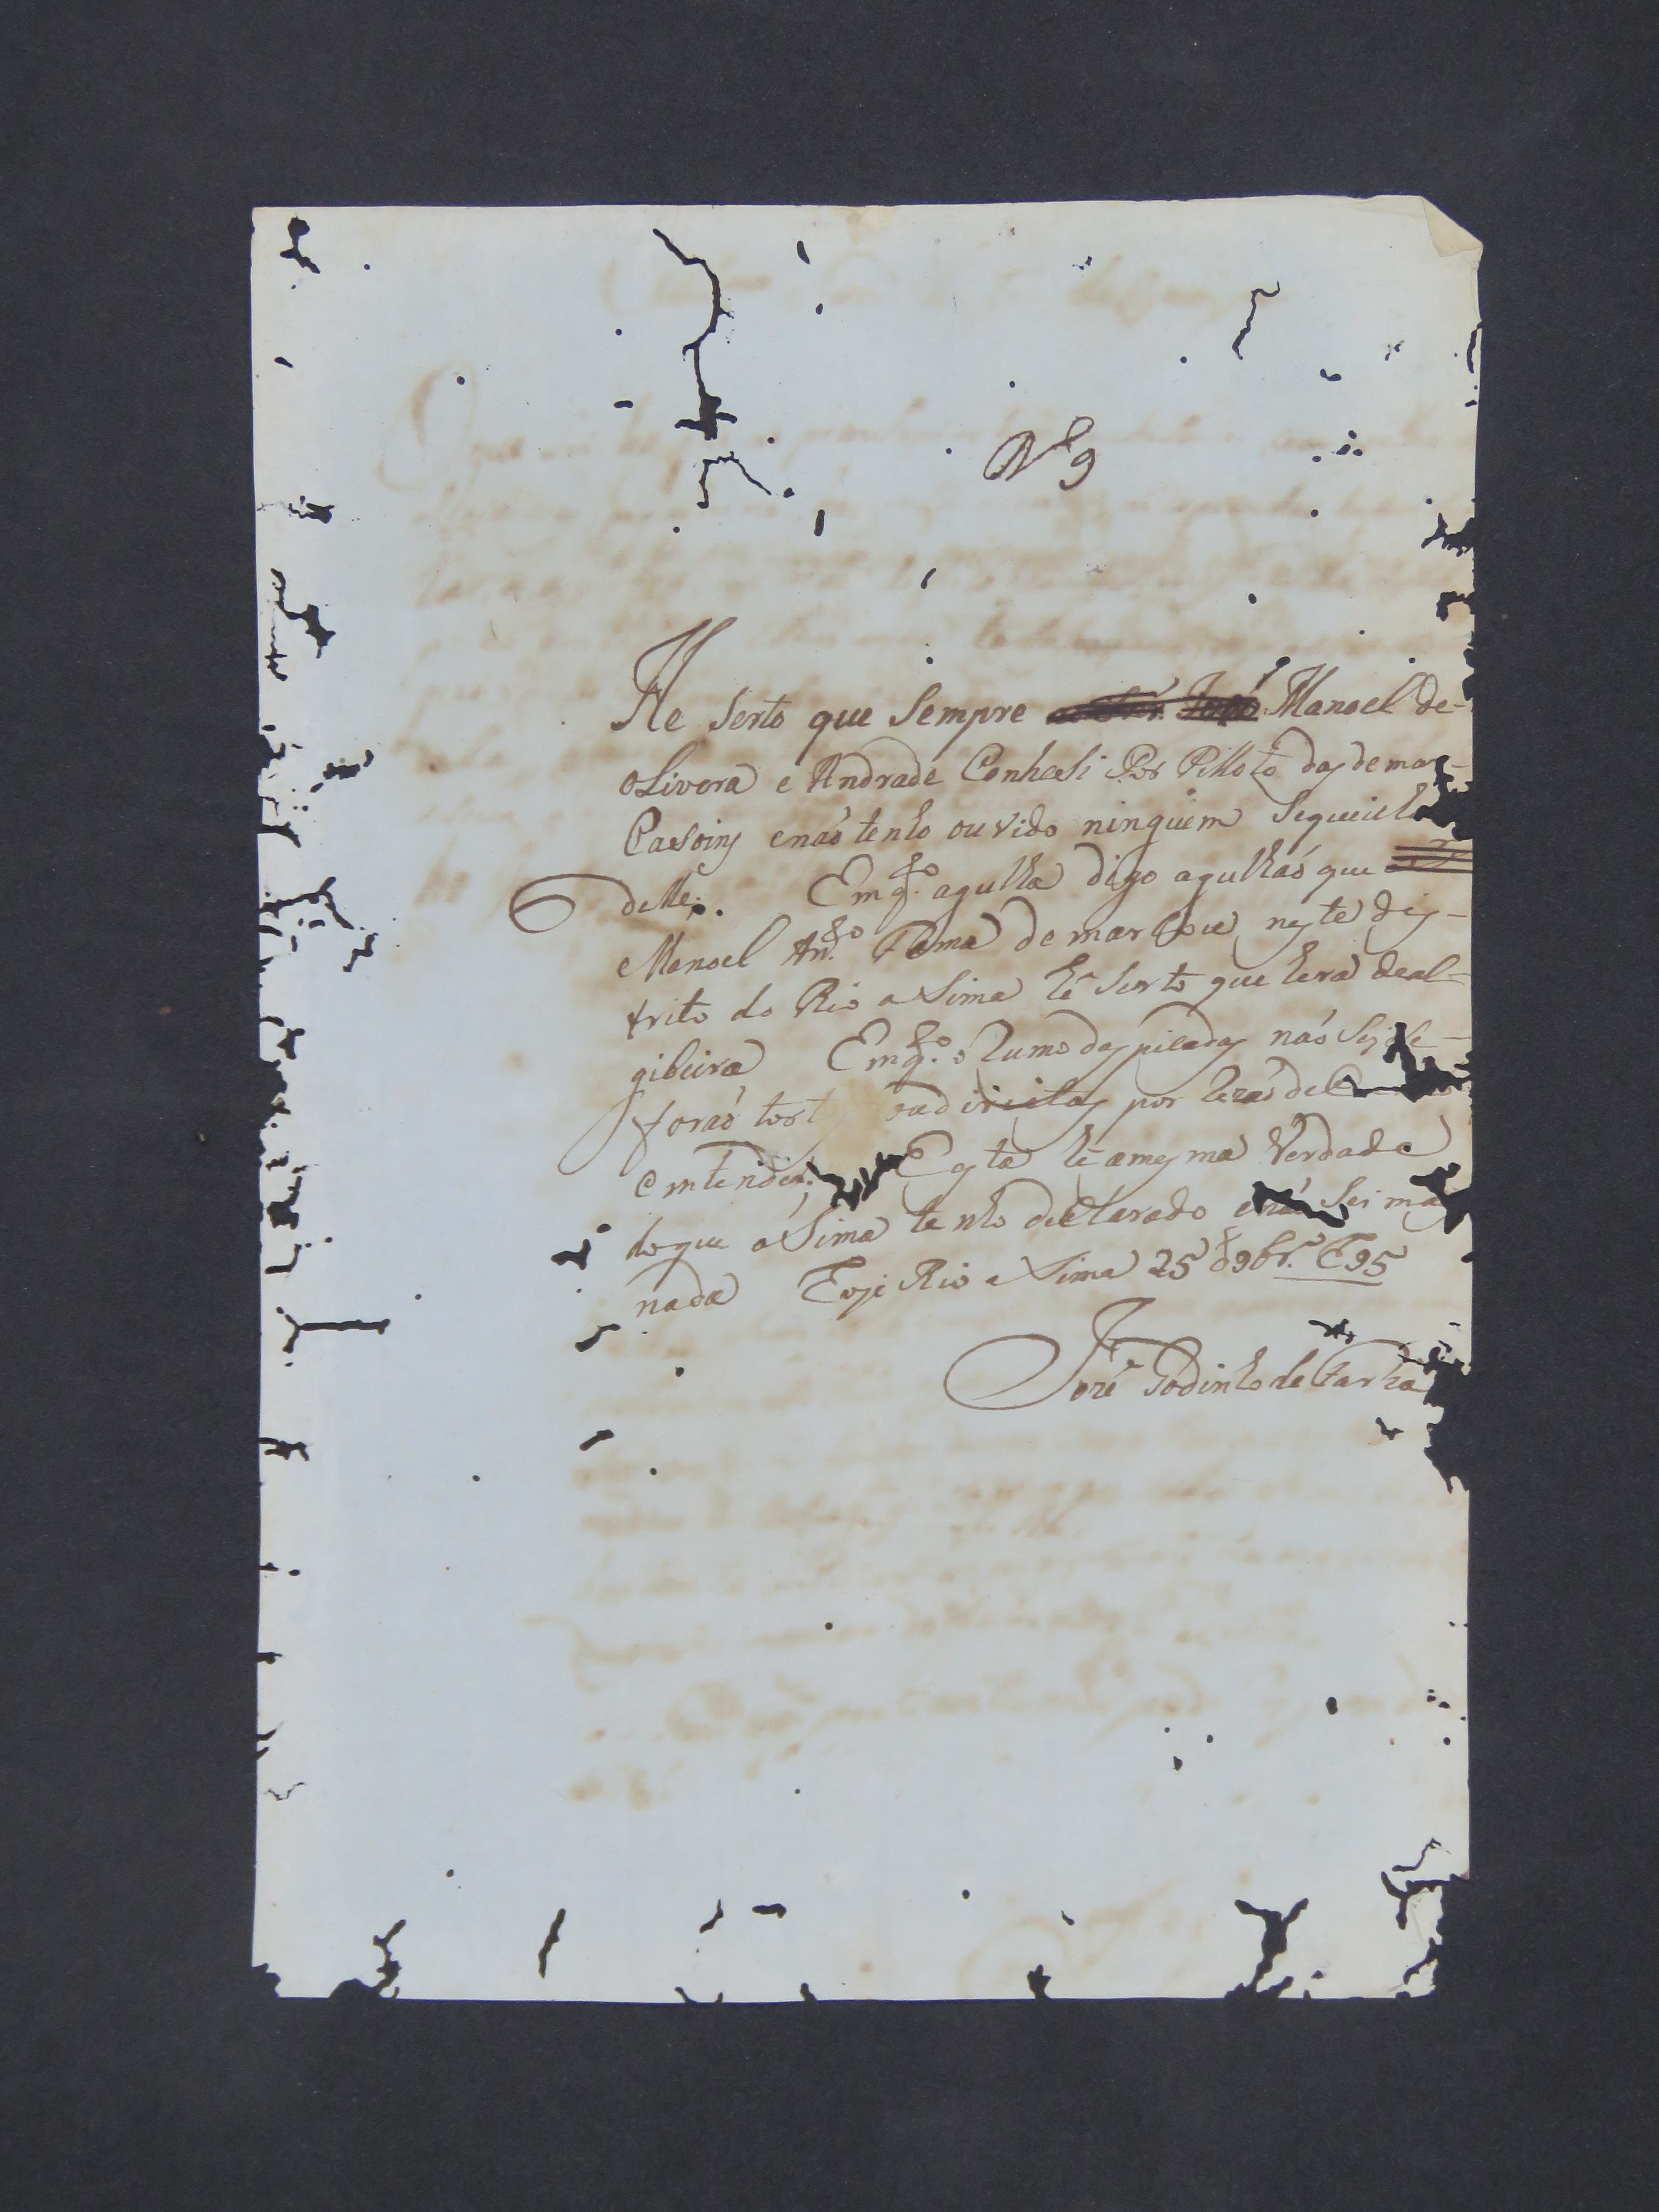 N.º 9
He Serto que Sempre Manoel de-
oLivera e Andrade Conhesi Por Pilloto das demar-
Casoins enaõ tenho ouvido ninguem
delle. Emq.to agulha digo agulhaõ que
Manoel An.to Pama demarCou neste dis-
trito do Rio a Sima hé Serto que hera deal-
gibeira Emq.to o Rumo das picadas naõ Sei Se-
foraõ ou direitas por
emtender. Esta hé amesma Verdade
do que asima tenho declarado enaõ Sei mas
nada Eoje Rio a Sima 25 de 9br.º E95
Jozé Godinho de Faria